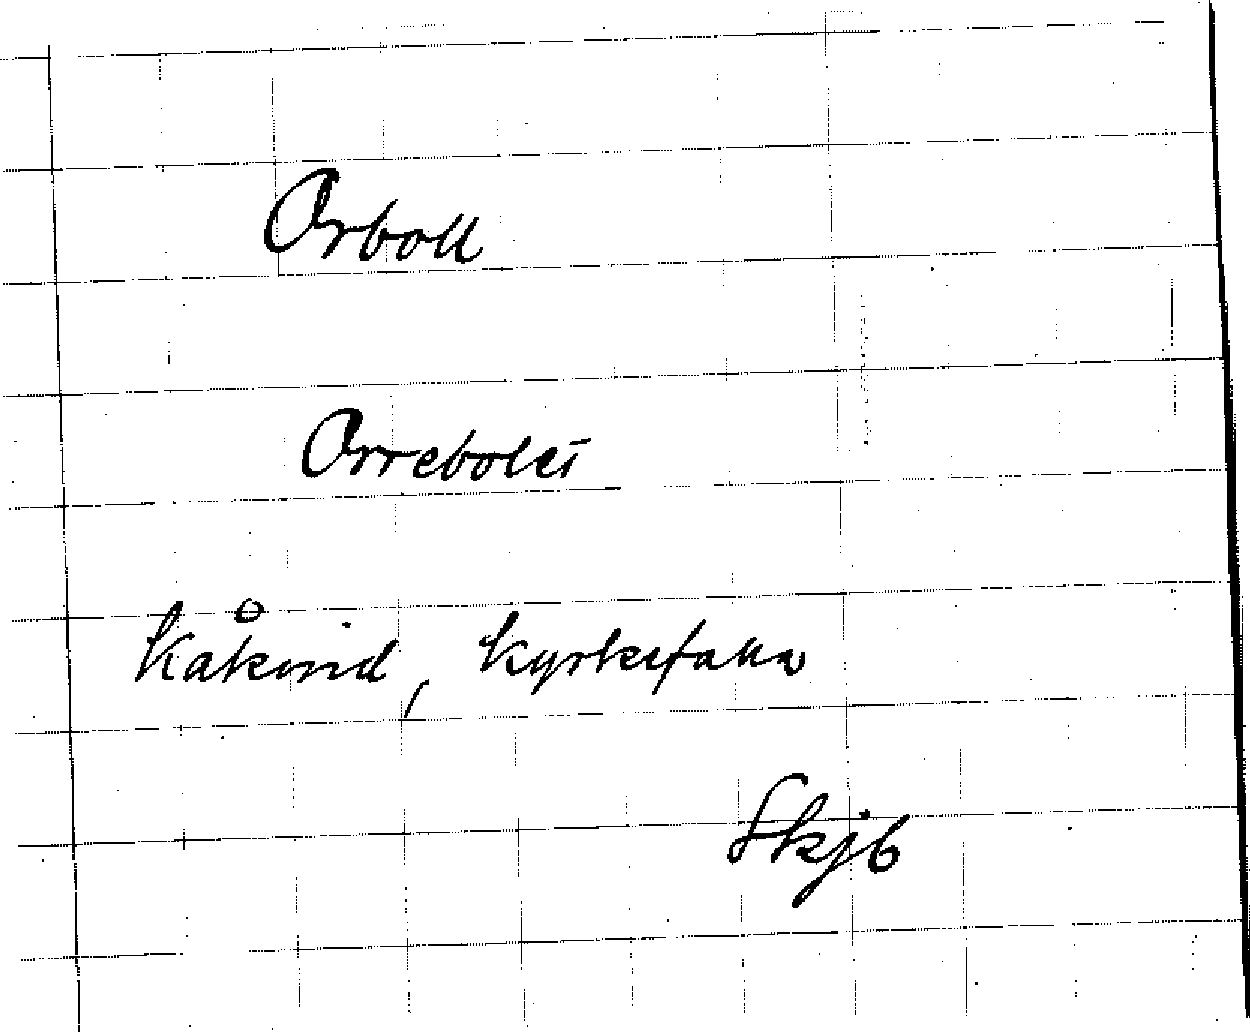 Orboll
Orrebolet
Kåkvid, Kyrkefalla
Skjb